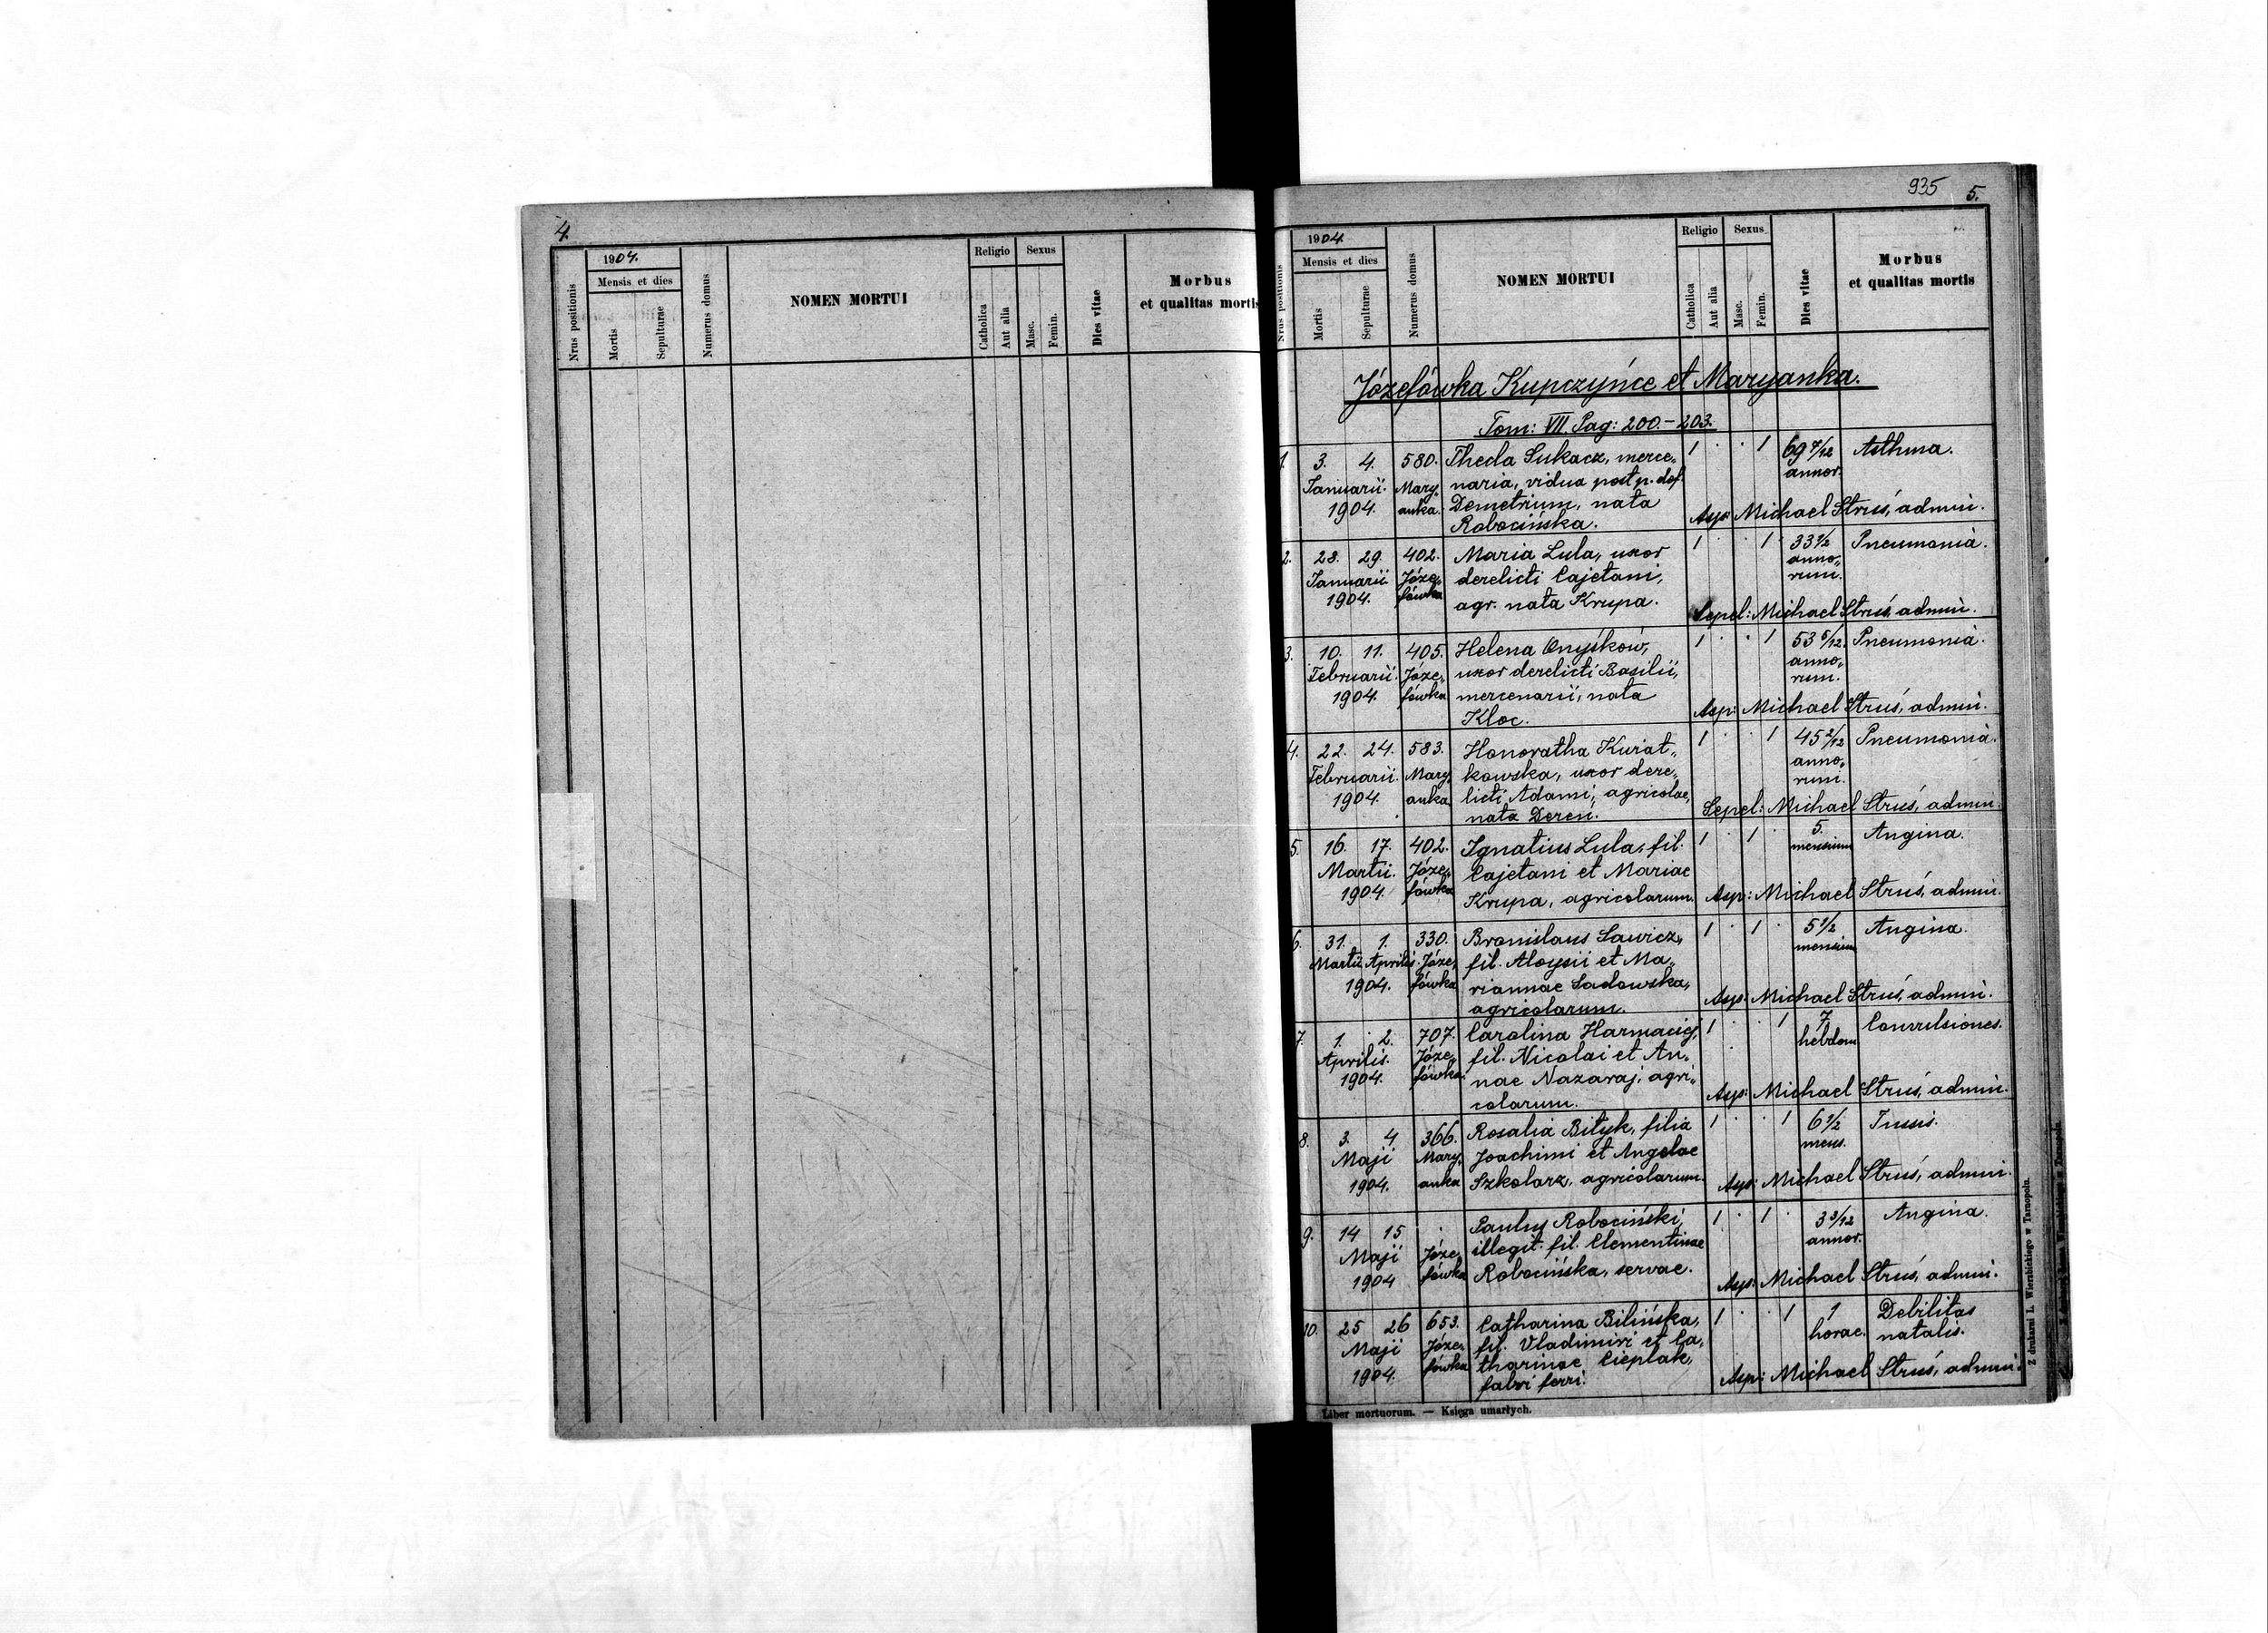 4.
1904.
Religio
Sexus
Mensis et dies
Nrus positionis
Mortis
Sepulturae
Numerus domus
NOMEN MORTUI
Catholica
Aut alia
Masc.
Femin.
Dies vitae
Morbus
et qualitas mortis
935
5.
1904.
Religio
Sexus
Mensis et dies
Nrus positionis
Mortis
Sepulturae
Numerus domus
NOMEN MORTUI
Catholica
Aut alia
Masc.
Femin.
Dies vitae
Morbus
et qualitas mortis
Józefówka Kupczyńce et Maryanka.
Tom: VII. Pag: 200.-203.
1. 3. 4. 580. Thecla Lukacz, merce„ 1 · · 1 69 7/12 Asthma.
Januarii. Mary„ naria, vidua post p. def. annor.
1904. anka. Demetrium, nata
Robocińska. Asp: Michael Struś, admin.
2. 28. 29. 402. Maria Lula, uxor 1 · · 1 33 1/2 Pneumonia.
Januarii Józe„ derelicti Cajetani, anno„
1904. fówka agr. nata Krupa. rum.
Sepel: Michael Struś, admin.
3. 10. 11. 405. Helena Onyśków, 1 · · 1 53 5/12 Pneumonia.
Februarii. Józe„ uxor derelicti Basilii, anno„
1904. fówka mercenarii, nata rum.
Kloc. Asp: Michael Struś, admin.
4. 22. 24. 583. Honoratha Kwiat„ 1 · · 1 45 2/12 Pneumonia.
Februarii. Mary„ kowska, uxor dere„ anno„
1904. anka licti Adami, agricolae, rum.
nata Dereń. Sepel: Michael Struś, admin.
5. 16. 17. 402. Ignatius Lula, fil. 1 · 1 · 5. Angina.
Martii. Józe„ Cajetani et Mariae mensium
1904. fówka Krupa, agricolarum. Asp: Michael Struś, admin.
6. 31. 1. 330. Bronislaus Sawicz, 1 · 1 · 5 1/2 Angina.
Martii Aprilis. Józe„ fil. Aloysii et Ma„ mensium
1904. fówka riannae Sadowska,
agricolarum. Asp: Michael Struś, admin.
7. 1. 2. 707. Carolina Harmaciej, 1 · · 1 7 Convulsiones.
Aprilis. Józe„ fil. Nicolai et An„ hebdom
1904. fówka nae Nazaraj, agri„
colarum. Asp: Michael Struś, admin.
8. 3. 4 366. Rosalia Bityk, filia 1 · · 1 6 1/2 Tussis.
Maji Mary„ Joachimi et Angelae mens.
1904. anka Szkolarz, agricolarum. Asp: Michael Struś, admin.
9. 14 15 · Paulus Robociński, 1 · 1 · 3 3/12 Angina.
Maji Józe„ illegit. fil. Clementinae annor.
1904 fówka Robocińska, servae. Asp: Michael Struś, admin.
10. 25 26 653. Catharina Bilińska, 1 · · 1 1 Debilitas
Maji Józe„ fil. Vladimiri et Ca„ horae. natalis.
1904. fówka tharinae Cieplak,
fabri ferri. Asp: Michael Struś, admin.
Liber mortuorum. — Księga umarłych.
Z drukarni L. Wierzbickiego w Tarnopolu.